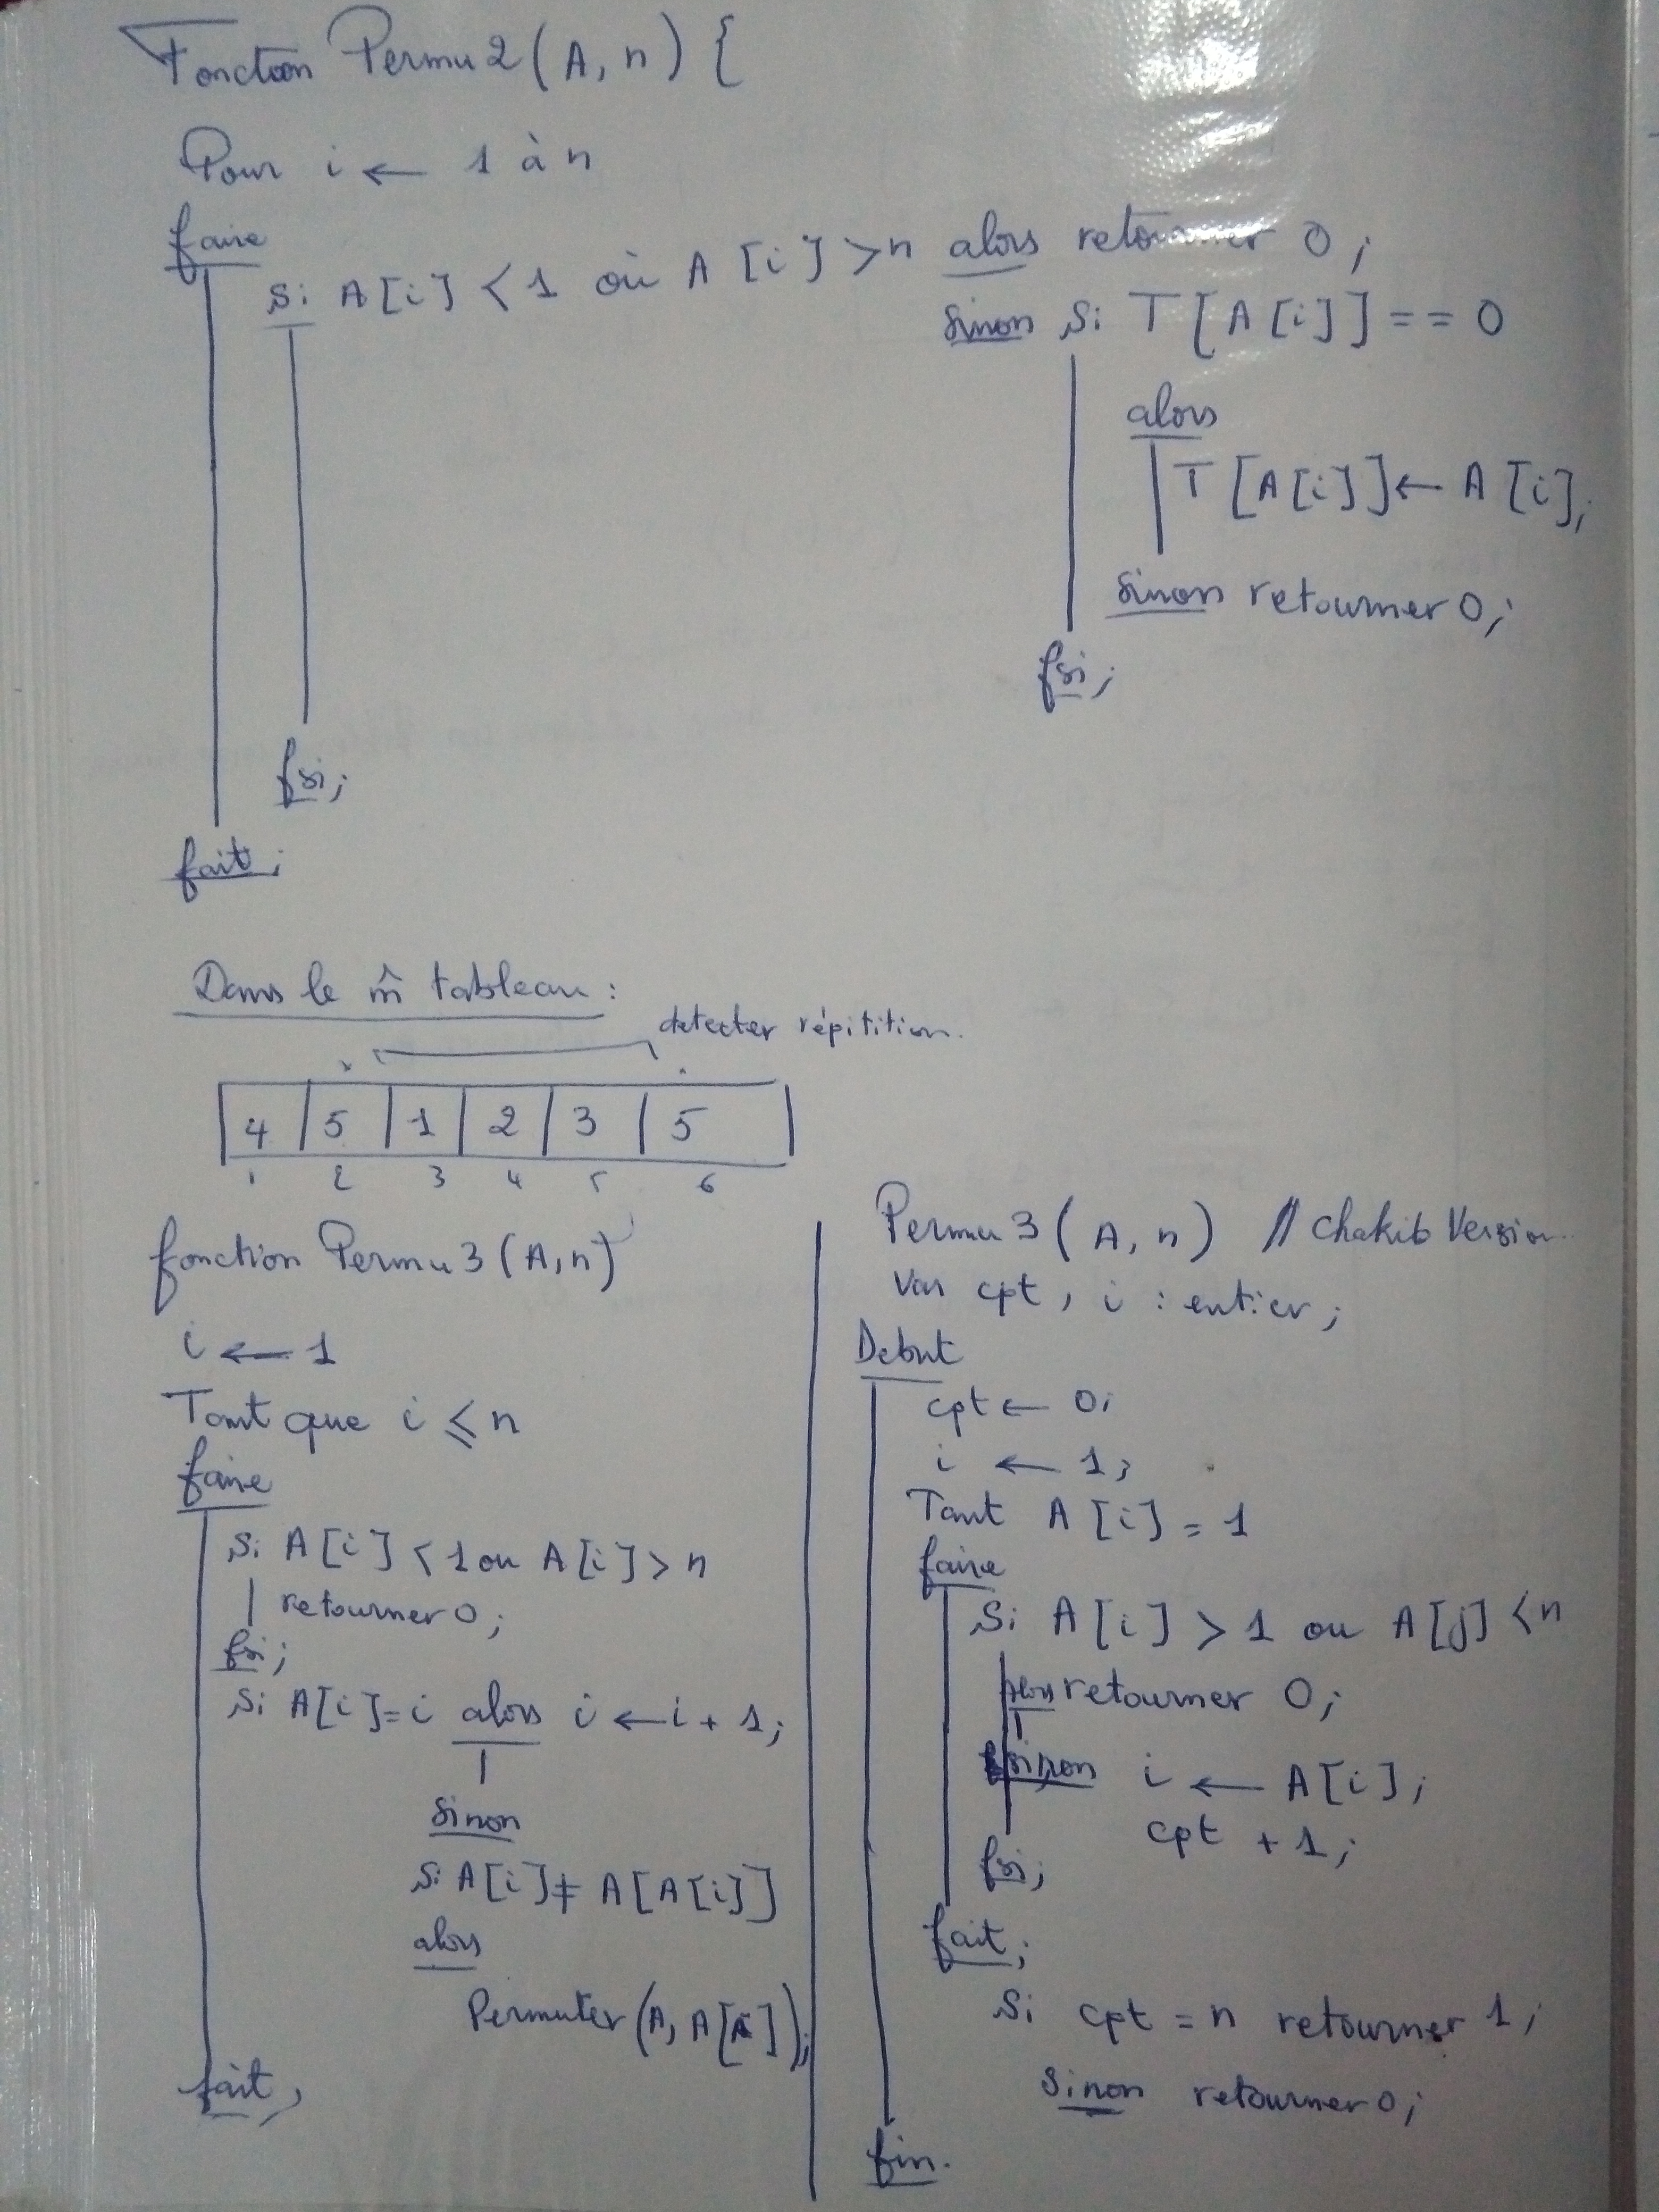 Fonction Permu2(A, n) {
Pour i ← 1 à n
faire
Si A[i] < 1 où A[i] > n alors retourner 0;
sinon Si T[A[i]] == 0
alors
T[A[i]] ← A[i];
sinon retourner 0;
fsi;
fsi;
fait;
Dans le m̂ tableau :
detecter répitition.
4 5 1 2 3 5
1 2 3 4 5 6
fonction Permu3(A,n)
i ← 1
Tant que i ≤ n
faire
Si A[i] < 1 ou A[i] > n
retourner 0;
fsi;
Si A[i]=i alors i ← i + 1;
sinon
Si A[i] ≠ A[A[i]]
alors
Permuter(A, A[]);
fait;
Permu3(A, n) // Chakib Version
Var cpt, i : entier;
Debut
cpt ← 0;
i ← 1;
Tant A[i] = 1
faire
Si A[i] > 1 ou A[j] < n
alors retourner 0;
sinon i ← A[i];
cpt + 1;
fsi;
fait;
Si cpt = n retourner 1;
sinon retourner 0;
fin.